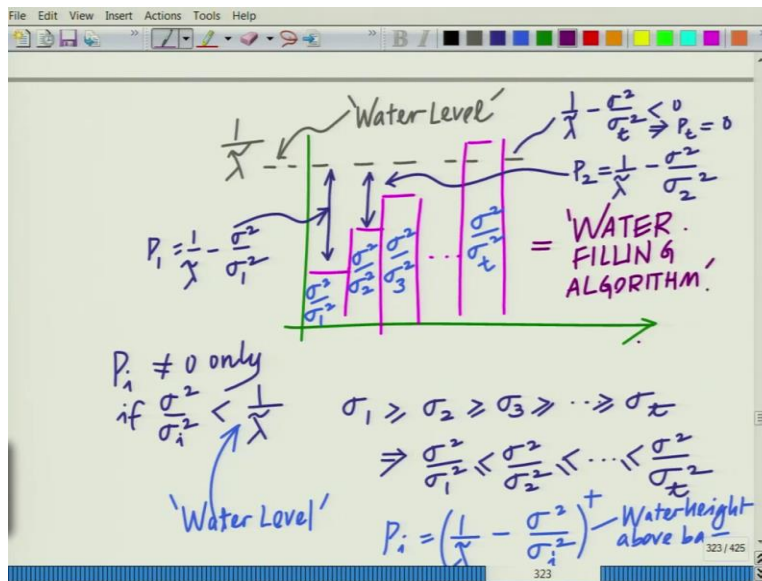 File Edit View Insert Actions Tools Help
B I
'Water Level'
1/λ̃
1/λ̃ - σ²/σ_t² < 0
⇒ P_t = 0
P_2 = 1/λ̃ - σ²/σ_2²
P_1 = 1/λ̃ - σ²/σ_1²
σ²/σ_1² σ²/σ_2² σ²/σ_3² ... σ²/σ_t²
= 'WATER
FILLING
ALGORITHM.'
P_i ≠ 0 only
if σ²/σ_i² < 1/λ̃
'Water Level'
σ_1 ≥ σ_2 ≥ σ_3 ≥ ... ≥ σ_t
⇒ σ²/σ_1² ≤ σ²/σ_2² ≤ ... ≤ σ²/σ_t²
P_i = (1/λ̃ - σ²/σ_i²)^+
Water height
above ba
323/425
323